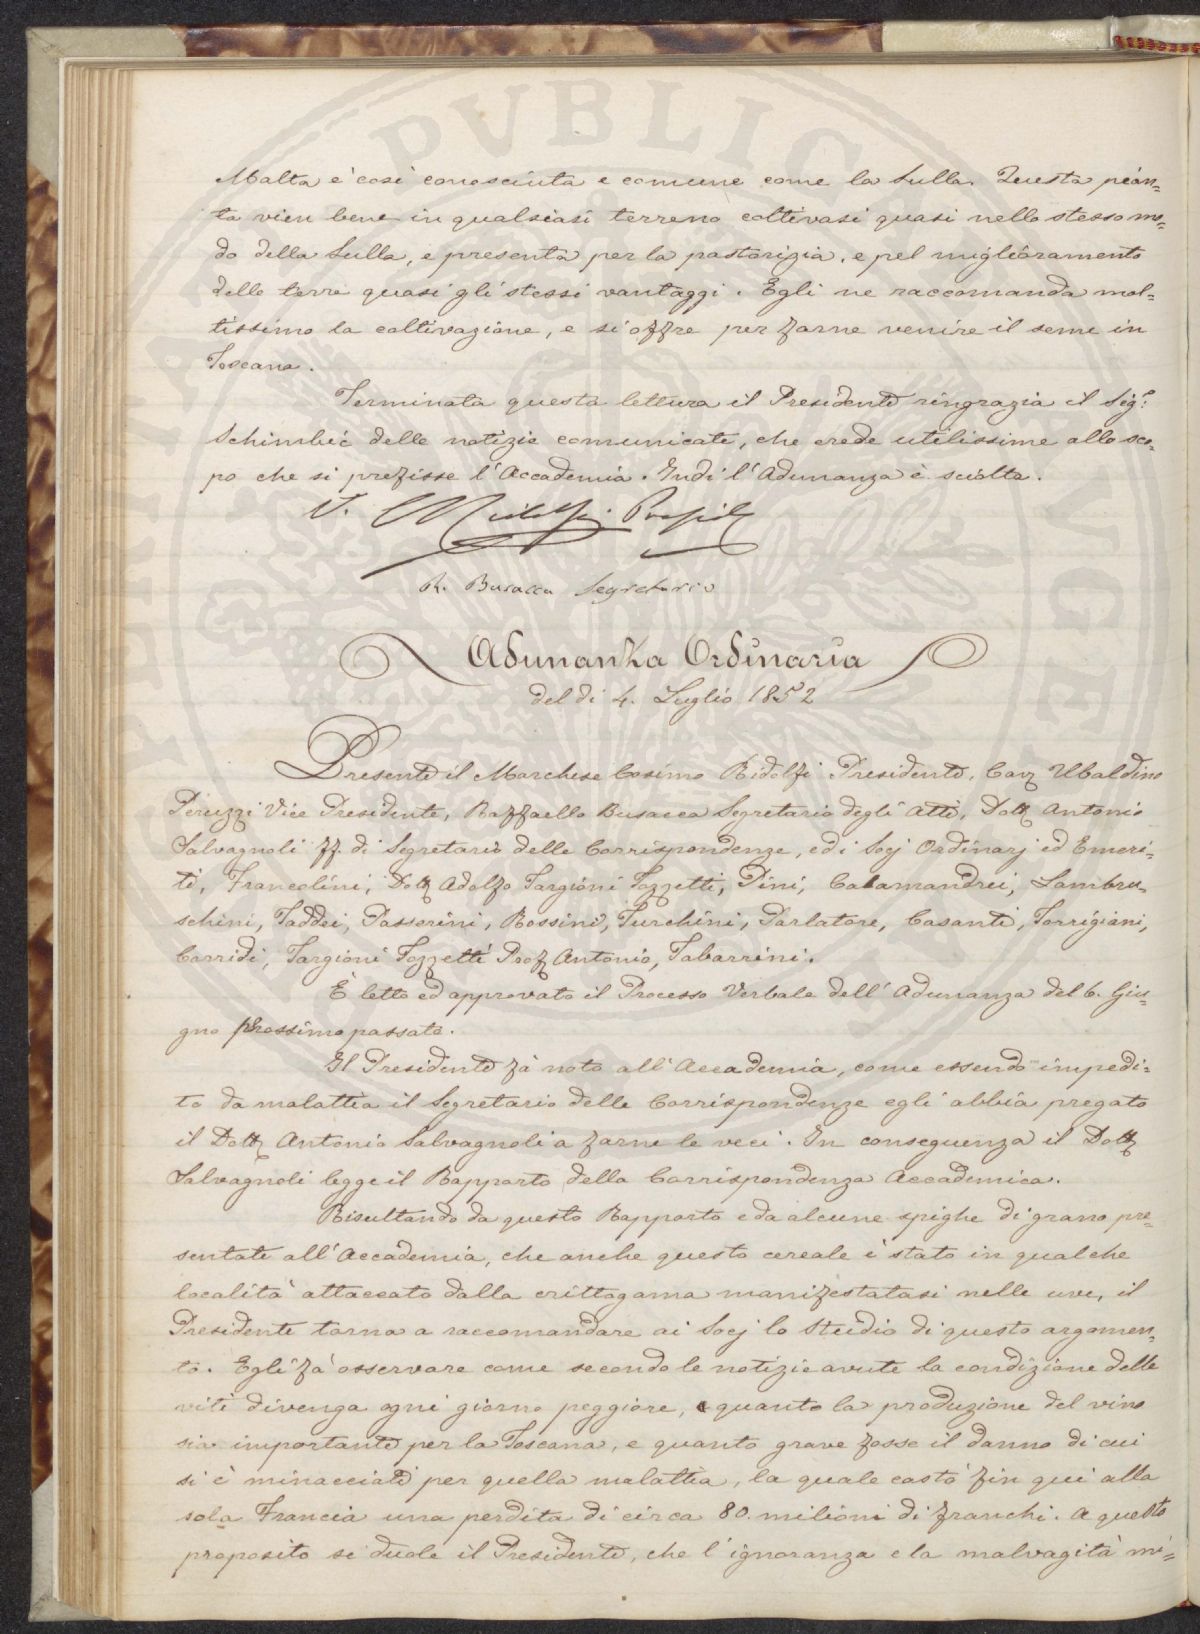 Malta è così conosciuta e comune come la Sulla. Questa pian=
ta vien bene in qualsiasi terreno coltivasi quasi nello stesso mo=
do della Sulla, e presenta per la pastorizia, e pel miglioramento
delle terre quasi gli stessi vantaggi. Egli ne raccomanda mol=
tissimo la coltivazione, e si offre per farne venire il seme in
Toscana.
Terminata questa lettura il Presidente ringrazia il Sig.r
Schimbic delle notizie comunicate, che crede utilissime allo sco=
po che si prefisse l'Accademia. Indi l'Adunanza è sciolta.
V. C Ridolfi Presid.
R. Busacca Segretario
Adunanza Ordinaria
del dì 4. Luglio 1852
Presenti il Marchese Cosimo Ridolfi Presidente, Cav. Ubaldino
Peruzzi Vice Presidente, Raffaello Busacca Segretario degli Atti, Dott. Antonio
Salvagnoli ff. di Segretario delle Corrispondenze, ed i Socj Ordinarj ed Emeri=
ti, Francolini, Dott. Adolfo Targioni Tozzetti, Pini, Calamandrei, Lambru=
schini, Taddei, Passerini, Rossini, Turchini, Parlatore, Casanti, Torrigiani,
Corridi, Targioni Tozzetti Prof. Antonio, Tabarrini.
È letto ed approvato il Processo Verbale dell'Adunanza del 6. Giu=
gno prossimo passato.
Il Presidente fà noto all'Accademia, come essendo impedi=
to da malattia il Segretario delle Corrispondenze egli abbia pregato
il Dott. Antonio Salvagnoli a farne le veci. In conseguenza il Dott.
Salvagnoli legge il Rapporto della Corrispondenza Accademica.
Risultando da questo Rapporto e da alcune spighe di grano pre=
sentate all'Accademia, che anche questo cereale è stato in qualche
località attaccato dalla crittogama manifestatasi nelle uve, il
Presidente torna a raccomandare ai Socj lo Studio di questo argomen=
to. Egli fà osservare come secondo le notizie avute la condizione delle
viti divenga ogni giorno peggiore, e quanto la produzione del vino
sia importante per la Toscana, e quanto grave fosse il danno di cui
si è minacciati per quella malattia, la quale costò fin qui alla
sola Francia una perdita di circa 80. milioni di franchi. A questo
proposito si duole il Presidente, che l'ignoranza e la malvagità mi=
PUBLIC